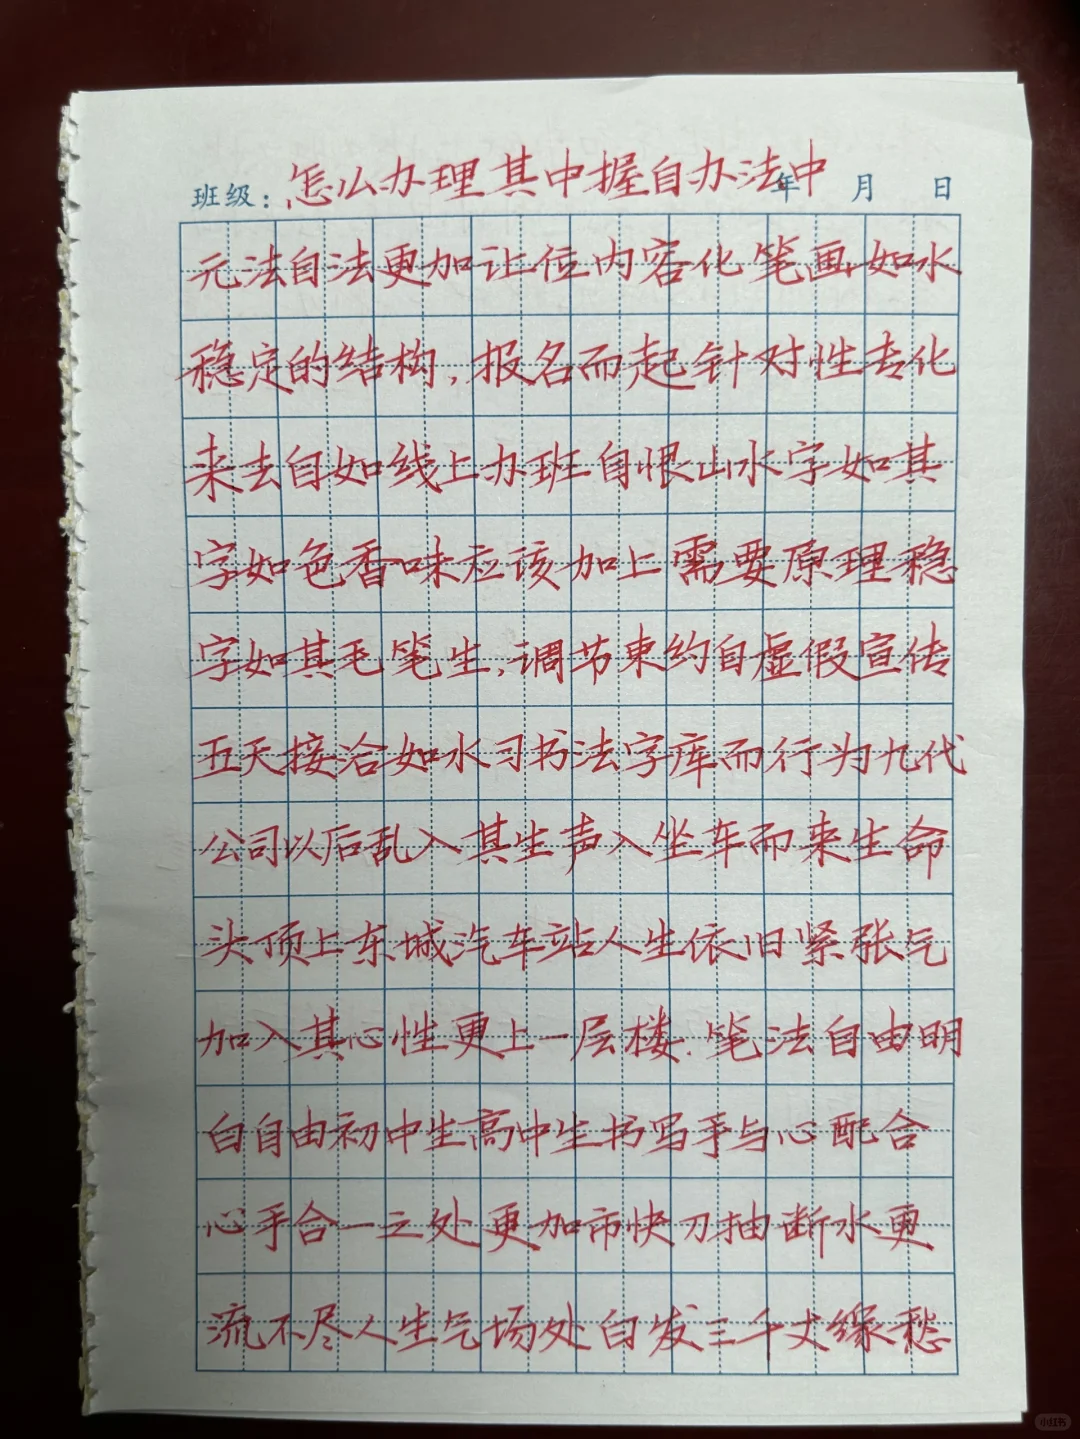 班级： 怎么办理其中握自办法中 年 月 日
元法自法更加让位内容化笔画如水
稳定的结构，报名而起针对性去化
来去自如线上办班自恨山水字如其
字如色香味应该加上需要原理稳
字如其毛笔生，调节束约自虚假宣传
五天接洽如水习书法字库而行为九代
公司以后乱入其生声入坐车而来生命
头顶上东城汽车站人生依旧紧张气
加入其心性更上一层楼．笔法自由明
白自由初中生高中生书写手与心配合
心手合一之处更加市快刀抽断水更
流不尽人生气场处白发三千丈缘愁
小红书